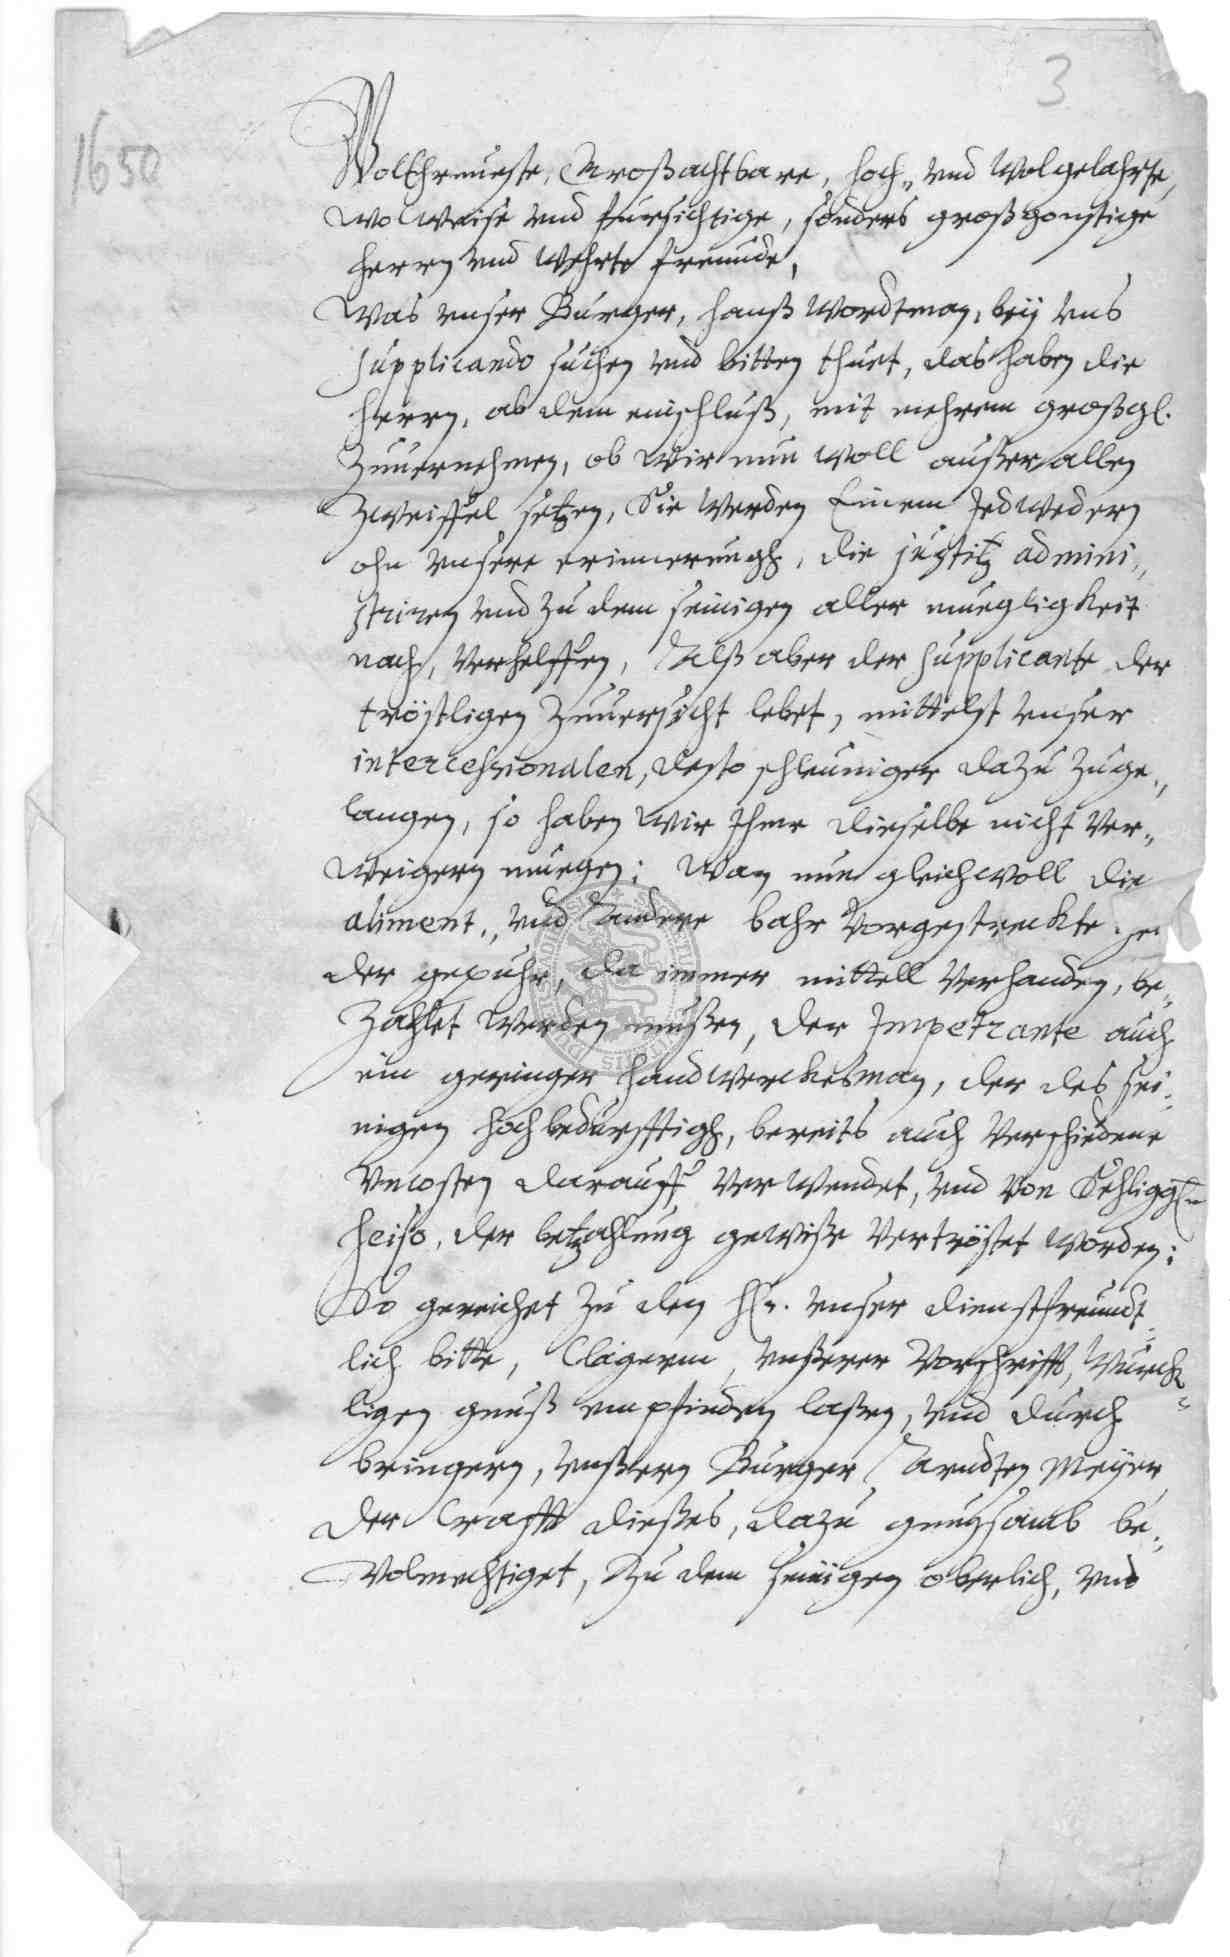 3
1650
WolEhrnueste, Großachtbare, hoch„ und Wolgelahrte,
Wolweise und fursichtige, sonders großgonstige
herrn und wehrte freunde,
Was unser Burger, Hanß Wordtman, beÿ uns
supplicando suchen und bitten thuet, das haben die
herrn, ab dem einschluß, mit mehrem großgl.
Zuuernehmen, ob wir nun woll außer allen
Zweiffel setzen, Sie werden Einem Jedwedern
ohn unsere erinnerungh, die justitz admini„
striren und zu dem seinigen aller muegligkeit
nach, verhelffen, Alß aber der supplicante der
tröstligen Zuuersicht lebet, mittelst unser
intercessionalen, desto schleuniger dazu zuge„
langen, so haben wir Ihme dieselbe nicht ver„
weigern muegen: Wan nun gleichwoll die
aliment„ und Andere bahr vorgestreckte
der gepuhr, da immer mittell verhanden, be„
Zahlet werden mußen, der Impetrante auch
ein geringer handwerckesman, der des sei„
nigen hochbedurfftigh, bereits auch verschiedene
Uncosten darauff verwendet, und von
heiso, der betzahlung gewisse vertröstet worden:
So gereichet zu den Hr. unser dienstfreundt
lich bitte, Clägerm, unßerer vorschrifft, wurck„
ligen gnuß empfinden laßen, und durch
bringern, unßern Burger, Arndten Meÿer
der Crafft dießes, dazu gnugsamb be„
volmechtiget, Zu dem seinigen oberlich, und